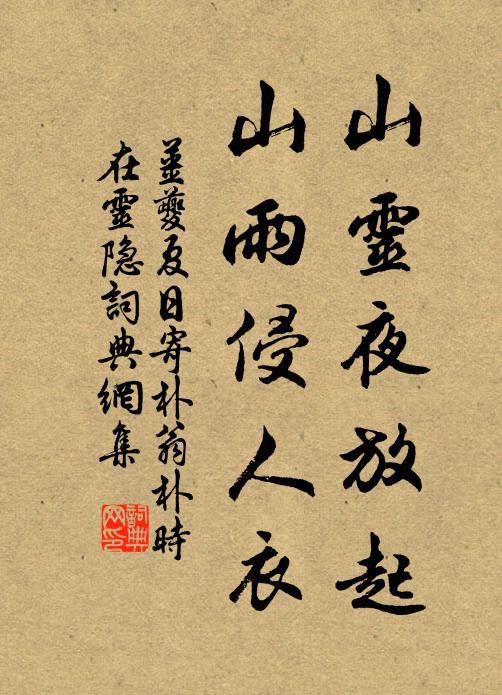 山靈夜放起
山雨侵人衣
姜夔夏日寄朴翁朴時
在靈隐詞典網集
詞典網印